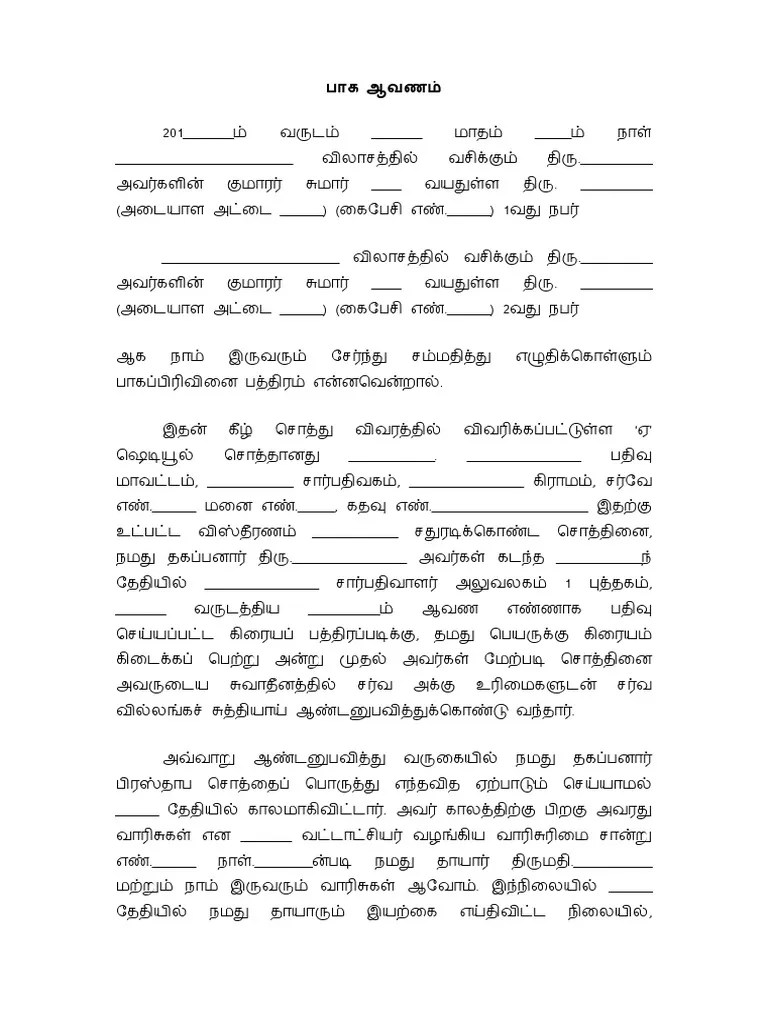 பாக ஆவணம்
201______ம் வருடம் ______ மாதம் ____ம் நாள்
_____________________ விலாசத்தில் வசிக்கும் திரு._________
அவர்களின் குமாரர் சுமார் ____ வயதுள்ள திரு. _________
(அடையாள அட்டை _____) (கைபேசி எண்._____) 1வது நபர்
_____________________ விலாசத்தில் வசிக்கும் திரு._________
அவர்களின் குமாரர் சுமார் ____ வயதுள்ள திரு. _________
(அடையாள அட்டை _____) (கைபேசி எண்._____) 2வது நபர்
ஆக நாம் இருவரும் சேர்ந்து சம்மதித்து எழுதிக்கொள்ளும்
பாகப்பிரிவினை பத்திரம் என்னவென்றால்.
இதன் கீழ் சொத்து விவரத்தில் விவரிக்கப்பட்டுள்ள 'ஏ'
ஷெடியூல் சொத்தானது __________. _____________ பதிவு
மாவட்டம், __________ சார்பதிவகம், _____________ கிராமம், சர்வே
எண்._____ மனை எண்.____, கதவு எண்.__________________ இதற்கு
உட்பட்ட விஸ்தீரணம் __________ சதுரடிக்கொண்ட சொத்தினை,
நமது தகப்பனார் திரு._____________ அவர்கள் கடந்த __________ந்
தேதியில் _____________ சார்பதிவாளர் அலுவலகம் 1 புத்தகம்,
______ வருடத்திய ________ம் ஆவண எண்ணாக பதிவு
செய்யப்பட்ட கிரையப் பத்திரப்படிக்கு, தமது பெயருக்கு கிரையம்
கிடைக்கப் பெற்று அன்று முதல் அவர்கள் மேற்படி சொத்தினை
அவருடைய சுவாதீனத்தில் சர்வ அக்கு உரிமைகளுடன் சர்வ
வில்லங்கச் சுத்தியாய் ஆண்டனுபவித்துக்கொண்டு வந்தார்.
அவ்வாறு ஆண்டனுபவித்து வருகையில் நமது தகப்பனார்
பிரஸ்தாப சொத்தைப் பொருத்து எந்தவித ஏற்பாடும் செய்யாமல்
_____ தேதியில் காலமாகிவிட்டார். அவர் காலத்திற்கு பிறகு அவரது
வாரிசுகள் என ______ வட்டாட்சியர் வழங்கிய வாரிசுரிமை சான்று
எண்._____ நாள்._______ன்படி நமது தாயார் திருமதி._________
மற்றும் நாம் இருவரும் வாரிசுகள் ஆவோம். இந்நிலையில் _____
தேதியில் நமது தாயாரும் இயற்கை எய்திவிட்ட நிலையில்,